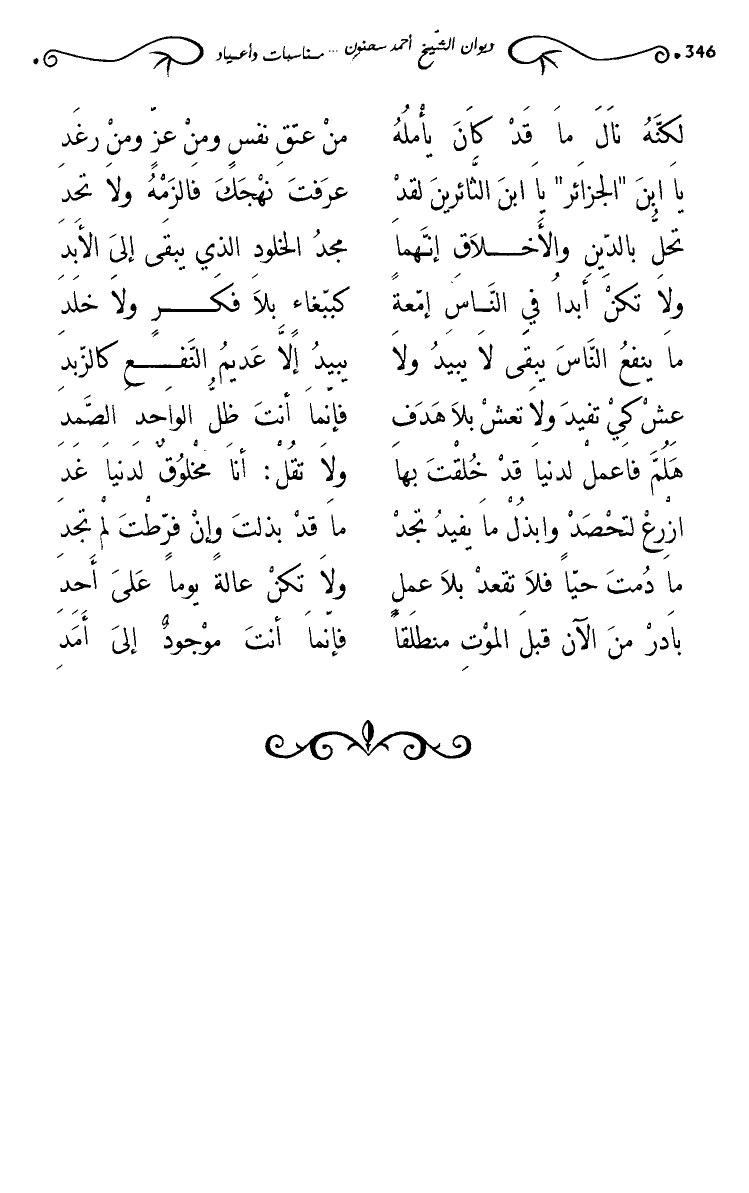 346 ديوان الشّيخ أحمد سحنون ... مناسبات وأعياد
لكنَّهُ نَالَ مَا قَدْ كَانَ يأْملُهُ منْ عتقِ نفسٍ ومنْ عزٍّ ومنْ رغَدِ
يا ابنَ "الجزائر" يا ابنَ الثَّائرينَ لقدْ عرَفتَ نهْجَكَ فالزَمْهُ ولاَ تحدِ
تحلَّ بالدِّينِ والأَخـــلاَقِ إنَّهما مجدُ الخلودِ الذي يبقَى إلىَ الأَبدِ
ولاَ تكنْ أبداً في النَّـاسِ إمّعةً كببّغاء بلاَ فكـــرٍ ولاَ خلدِ
ما ينفعُ النَّاسَ يبقَى لاَ يبيدُ ولاَ يبيدُ إلاَّ عَديمُ النَّفـــعِ كالزّبدِ
عشْ كيْ تفيدَ ولاَ تعشْ بلاَ هَدَفٍ فإنَّما أنتَ ظلُّ الواحدِ الصَّمدِ
هَلُمَّ فاعملْ لدنياَ قدْ خُلقْتَ بها ولاَ تقُلْ: أناَ مخْلُوقٌ لدنياَ غَدِ
ازْرعْ لتحْصَدْ وابذُلْ ما يفيدُ تجدْ ما قدْ بذلتَ وإنْ فرّطْتَ لمْ تجدِ
ما دُمتَ حيّاً فلاَ تقعدْ بلاَ عملٍ ولاَ تكنْ عالةً يوماً عَلىَ أَحدِ
بادرْ منَ الآنِ قبلَ الموْتِ منطلقاً فإنَّما أنتَ موْجودٌ إلىَ أَمَدِ